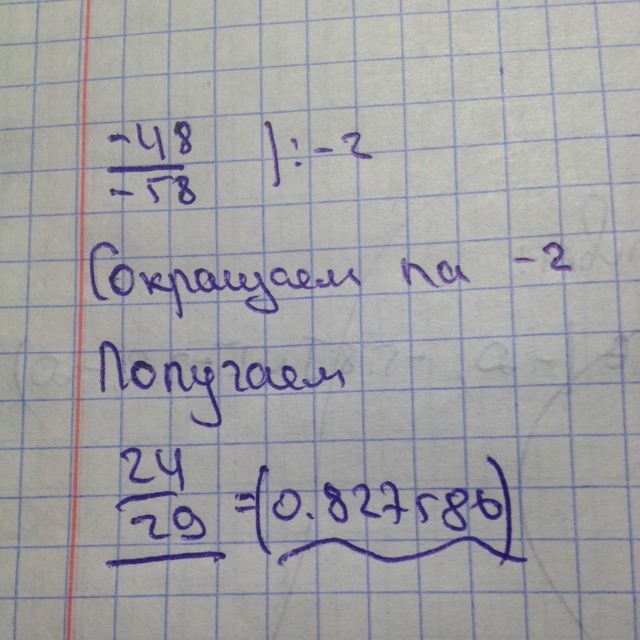 -48 | : -2
-58
Сокращаем на -2
Получаем
24
29 = (0.827586)